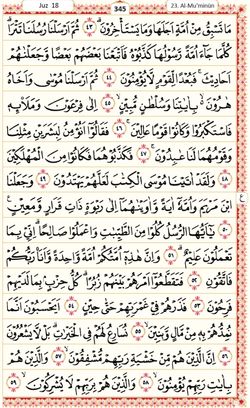 Juz 18
345
23. Al-Mu'minūn
مَا تَسْبِقُ مِنْ أُمَّةٍ أَجَلَهَا وَمَا يَسْتَأْخِرُونَ ۗ ٤٣ ثُمَّ أَرْسَلْنَا رُسُلَنَا تَتْرَا ۗ
كُلَّمَا جَآءَ أُمَّةً رَّسُولُهَا كَذَّبُوهُ فَأَتْبَعْنَا بَعْضَهُمْ بَعْضًا وَّجَعَلْنٰهُمْ
أَحَادِيْثَ ۚ فَبُعْدًا لِّقَوْمٍ لَّا يُؤْمِنُوْنَ ٤٤ ثُمَّ أَرْسَلْنَا مُوسٰى وَأَخَاهُ
هٰرُوْنَ ۙ بِاٰيٰتِنَا وَسُلْطٰنٍ مُّبِيْنٍ ۙ ٤٥ إِلٰى فِرْعَوْنَ وَمَلَا۟ئِهٖ
فَاسْتَكْبَرُوْا وَكَانُوْا قَوْمًا عَالِيْنَ ۚ ٤٦ فَقَالُوْٓا أَنُؤْمِنُ لِبَشَرَيْنِ مِثْلِنَا
وَقَوْمُهُمَا لَنَا عٰبِدُوْنَ ۚ ٤٧ فَكَذَّبُوْهُمَا فَكَانُوْا مِنَ الْمُهْلَكِيْنَ
٤٨ وَلَقَدْ اٰتَيْنَا مُوسَى الْكِتٰبَ لَعَلَّهُمْ يَهْتَدُوْنَ ٤٩ وَجَعَلْنَا
ابْنَ مَرْيَمَ وَأُمَّهٗٓ اٰيَةً وَّاٰوَيْنٰهُمَآ إِلٰى رَبْوَةٍ ذَاتِ قَرَارٍ وَّمَعِيْنٍ
٥٠ يٰٓأَيُّهَا الرُّسُلُ كُلُوْا مِنَ الطَّيِّبٰتِ وَاعْمَلُوْا صَالِحًا ۗ إِنِّيْ بِمَا
تَعْمَلُوْنَ عَلِيْمٌ ۗ ٥١ وَإِنَّ هٰذِهٖٓ أُمَّتُكُمْ أُمَّةً وَّاحِدَةً وَّأَنَا رَبُّكُمْ
فَاتَّقُوْنِ ٥٢ فَتَقَطَّعُوْٓا أَمْرَهُمْ بَيْنَهُمْ زُبُرًا ۗ كُلُّ حِزْبٍ بِمَا لَدَيْهِمْ
فَرِحُوْنَ ٥٣ فَذَرْهُمْ فِيْ غَمْرَتِهِمْ حَتّٰى حِيْنٍ ٥٤ أَيَحْسَبُوْنَ أَنَّمَا
نُمِدُّهُمْ بِهٖ مِنْ مَّالٍ وَّبَنِيْنَ ۙ ٥٥ نُسَارِعُ لَهُمْ فِى الْخَيْرٰتِ ۗ بَلْ لَّا يَشْعُرُوْنَ
٥٦ إِنَّ الَّذِيْنَ هُمْ مِّنْ خَشْيَةِ رَبِّهِمْ مُّشْفِقُوْنَ ۙ ٥٧ وَالَّذِيْنَ هُمْ
بِاٰيٰتِ رَبِّهِمْ يُؤْمِنُوْنَ ۙ ٥٨ وَالَّذِيْنَ هُمْ بِرَبِّهِمْ لَا يُشْرِكُوْنَ ۙ ٥٩